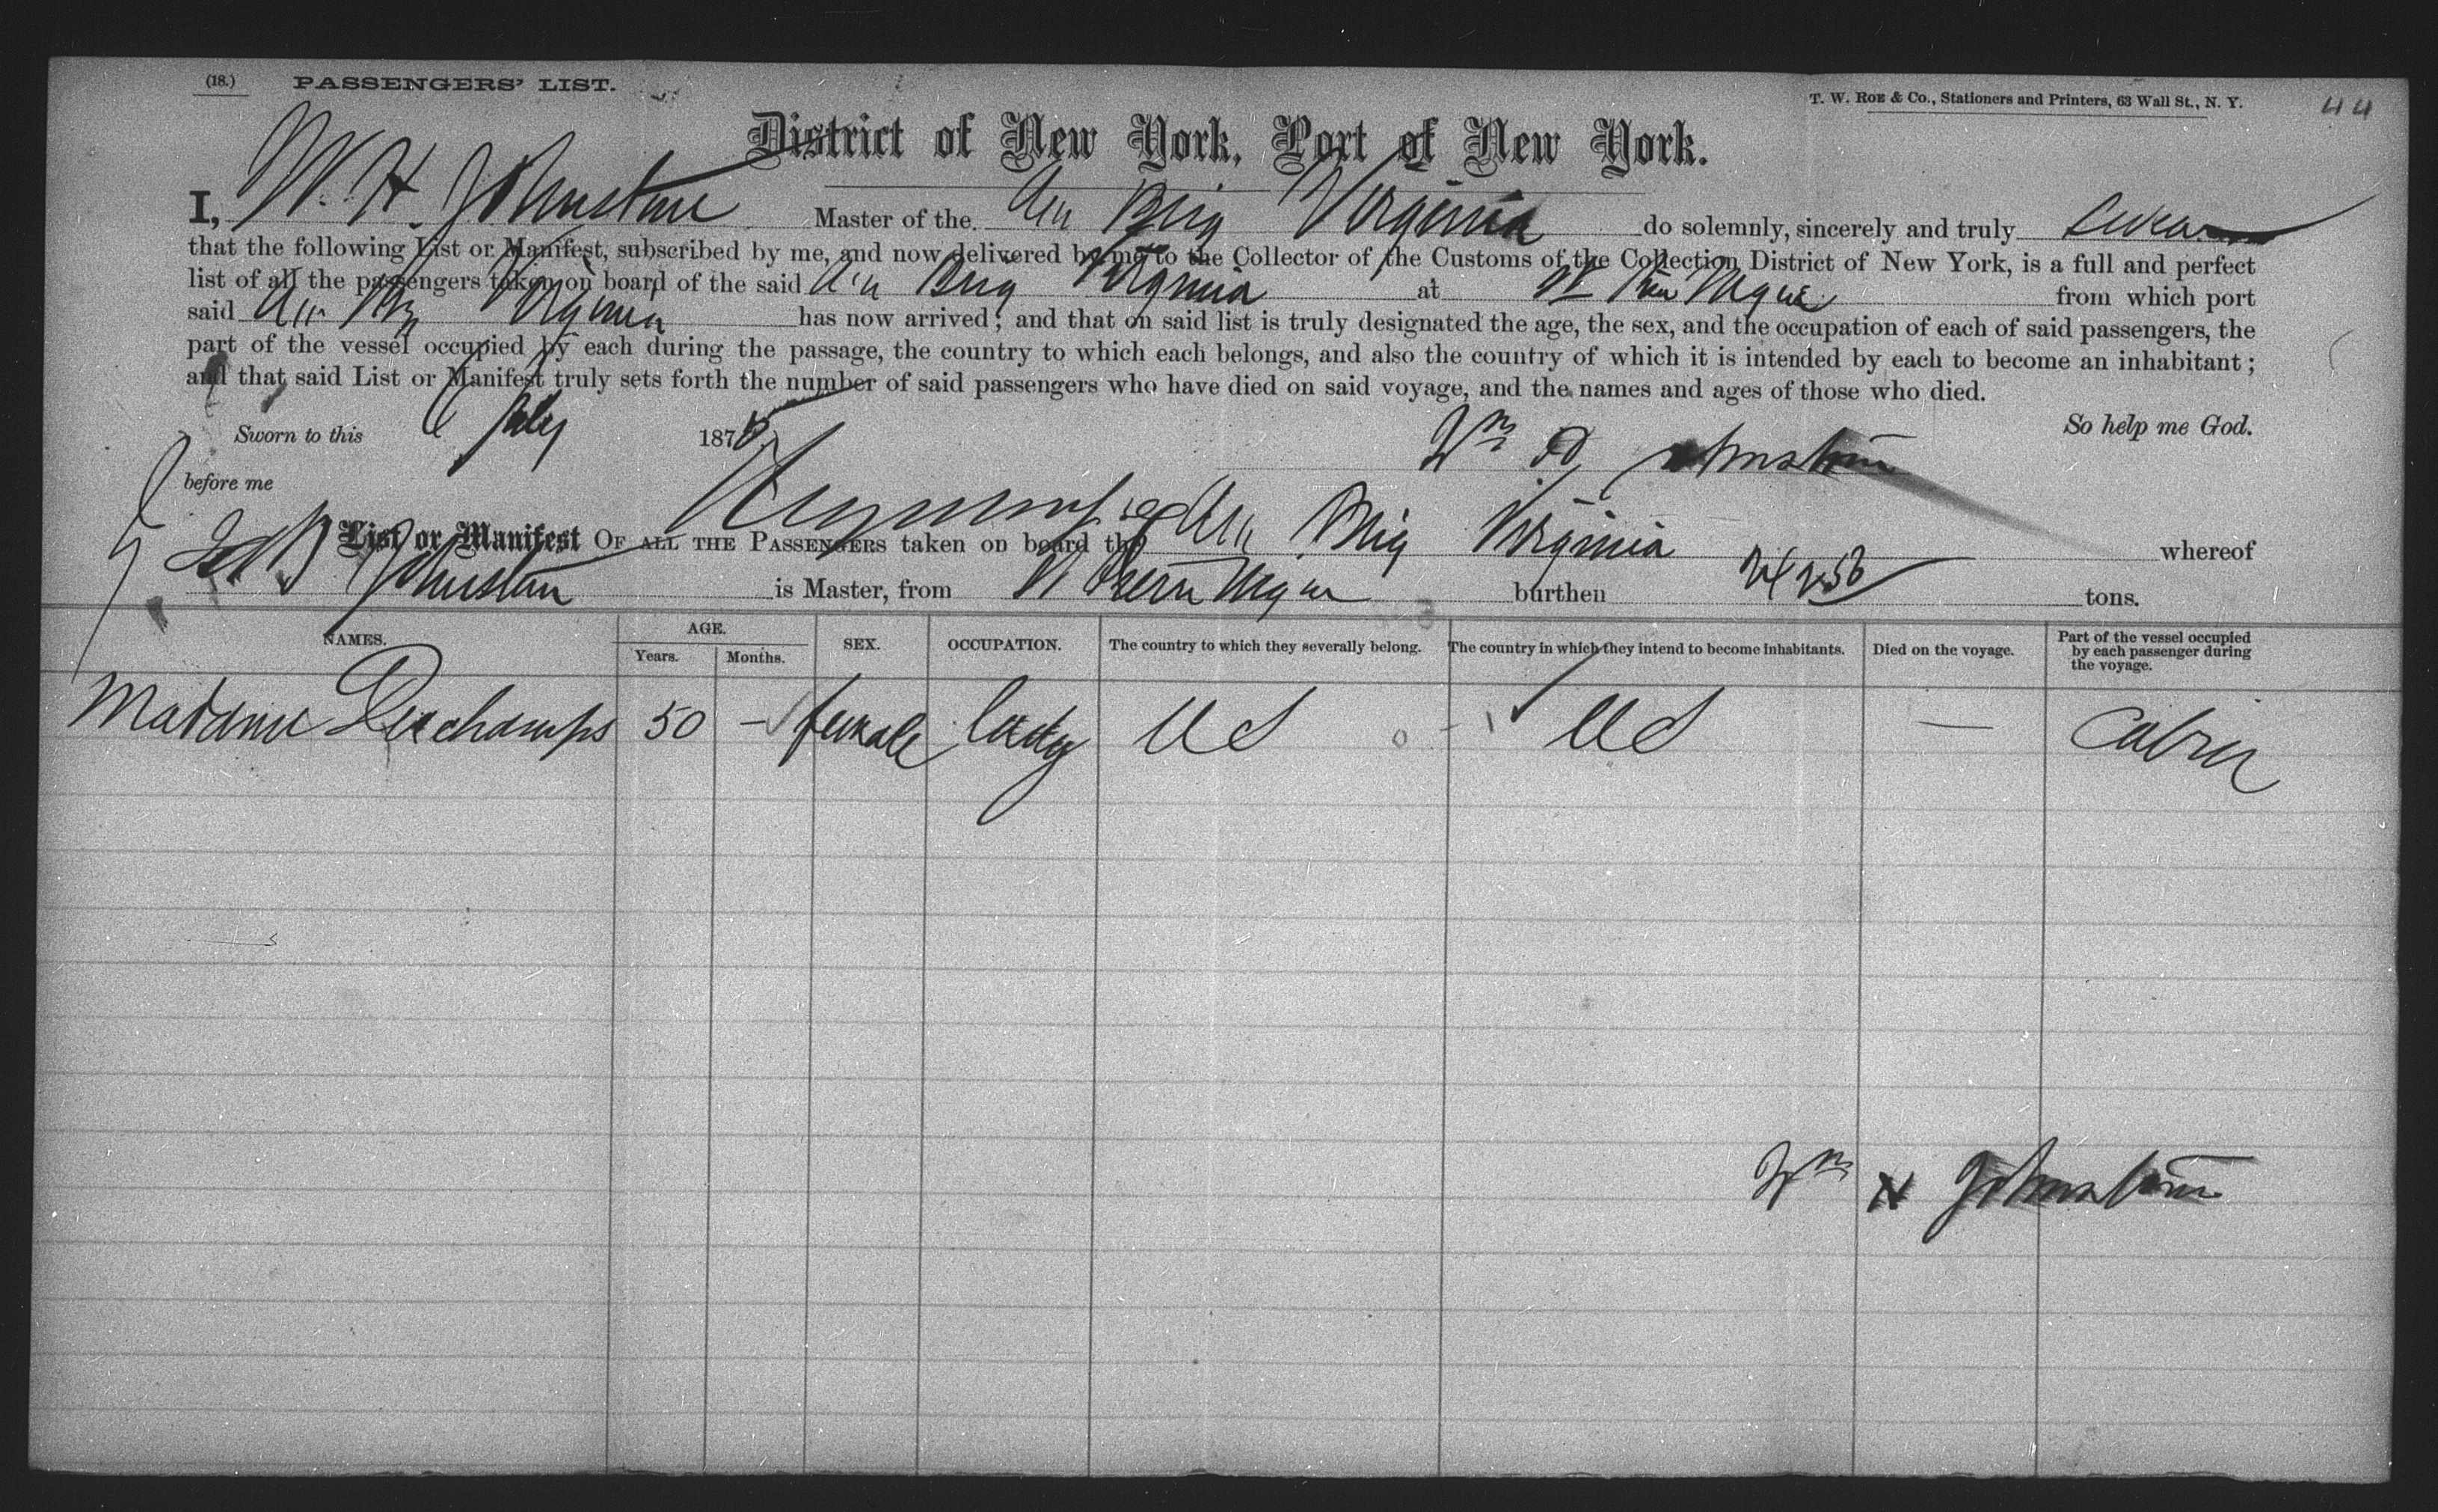 (18.) PASSENGERS' LIST.
T. W. ROE & Co., Stationers and Printers, 63 Wall St., N. Y. 44
District of New York, Port of New York.
I, W. H. Johnston Master of the Am Brig Virginia do solemnly, sincerely and truly swear
that the following List or Manifest, subscribed by me, and now delivered by me to the Collector of the Customs of the Collection District of New York, is a full and perfect
list of all the passengers taken on board of the said Am Brig Virginia at St Pierre Miqu from which port
said Am Brig Virginia has now arrived; and that on said list is truly designated the age, the sex, and the occupation of each of said passengers, the
part of the vessel occupied by each during the passage, the country to which each belongs, and also the country of which it is intended by each to become an inhabitant;
and that said List or Manifest truly sets forth the number of said passengers who have died on said voyage, and the names and ages of those who died.
Sworn to this 6 July 187 Wm H Johnston So help me God.
before me
List or Manifest OF ALL THE PASSENGERS taken on board the Am Brig Virginia whereof
Johnston is Master, from St Pierre Miqu burthen tons.
NAMES. AGE. Years. Months. SEX. OCCUPATION. The country to which they severally belong. The country in which they intend to become inhabitants. Died on the voyage. Part of the vessel occupied by each passenger during the voyage.
Madame Duchamps 50 — female lady US US — Cabin
Wm H Johnston